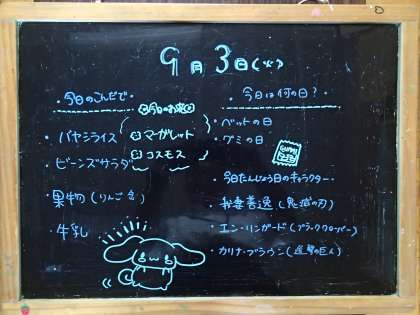 9月3日(火)
・今日のこんだて・
・ハヤシライス
・ビーンズサラダ
・果物(りんご缶)
・牛乳
今日のお楽
マーガレット
コスモス
・今日は何の日?・
・ベットの日
・グミの日
GUMMY
・今日たんじょう日のキャラクター・
・我妻善逸(鬼滅の刃)
・エン・リンガード(ブラッククローバー)
・カリナ・ブラウン(進撃の巨人)